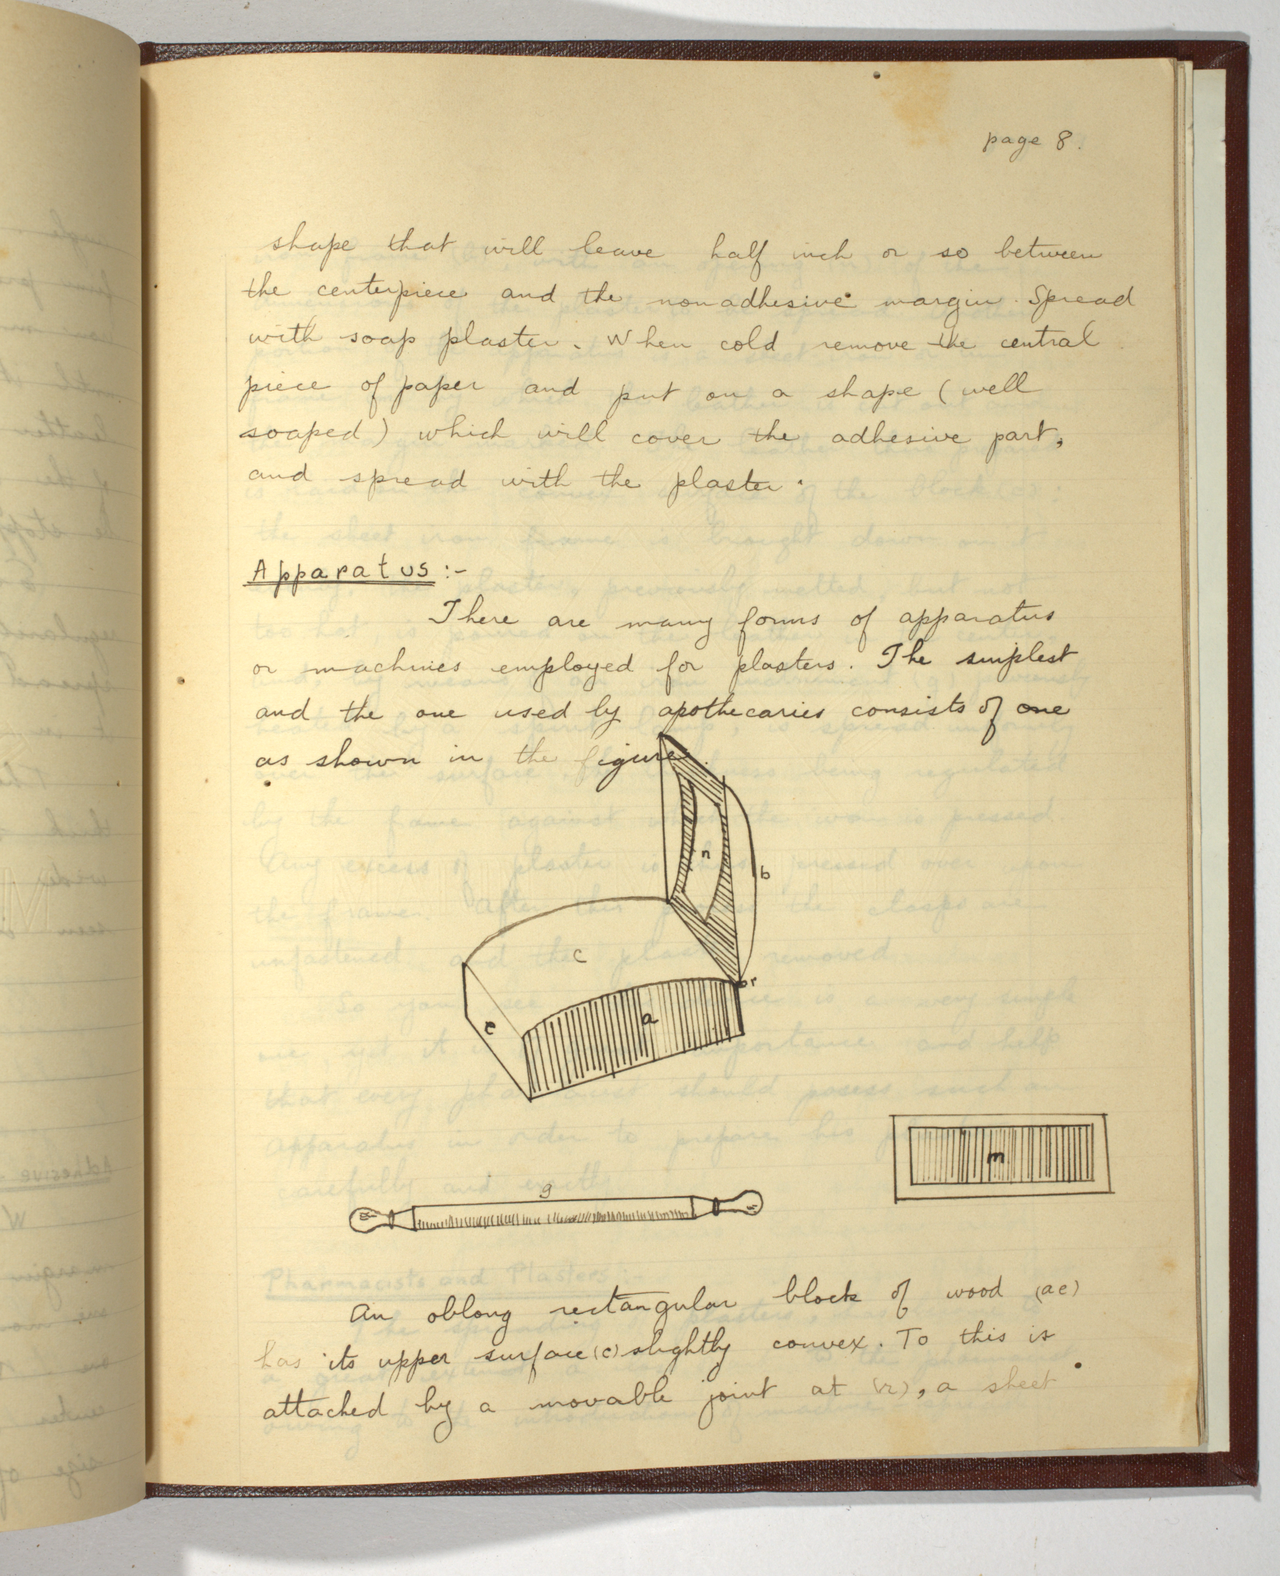 page 8.
shape that will leave half inch or so between
the centerpiece and the nonadhesive margin. Spread
with soap plaster. When cold remove the central
piece of paper and put on a shape (well
soaped) which will cover the adhesive part,
and spread with the plaster.
Apparatus:-
There are many forms of apparatus
or machines employed for plasters. The simplest
and the one used by apothecaries consists of one
as shown in the figure.
n
b
c
r
e
a
m
g
An oblong rectangular block of wood (ae)
has its upper surface (c) slightly convex. To this is
attached by a movable joint at (r), a sheet